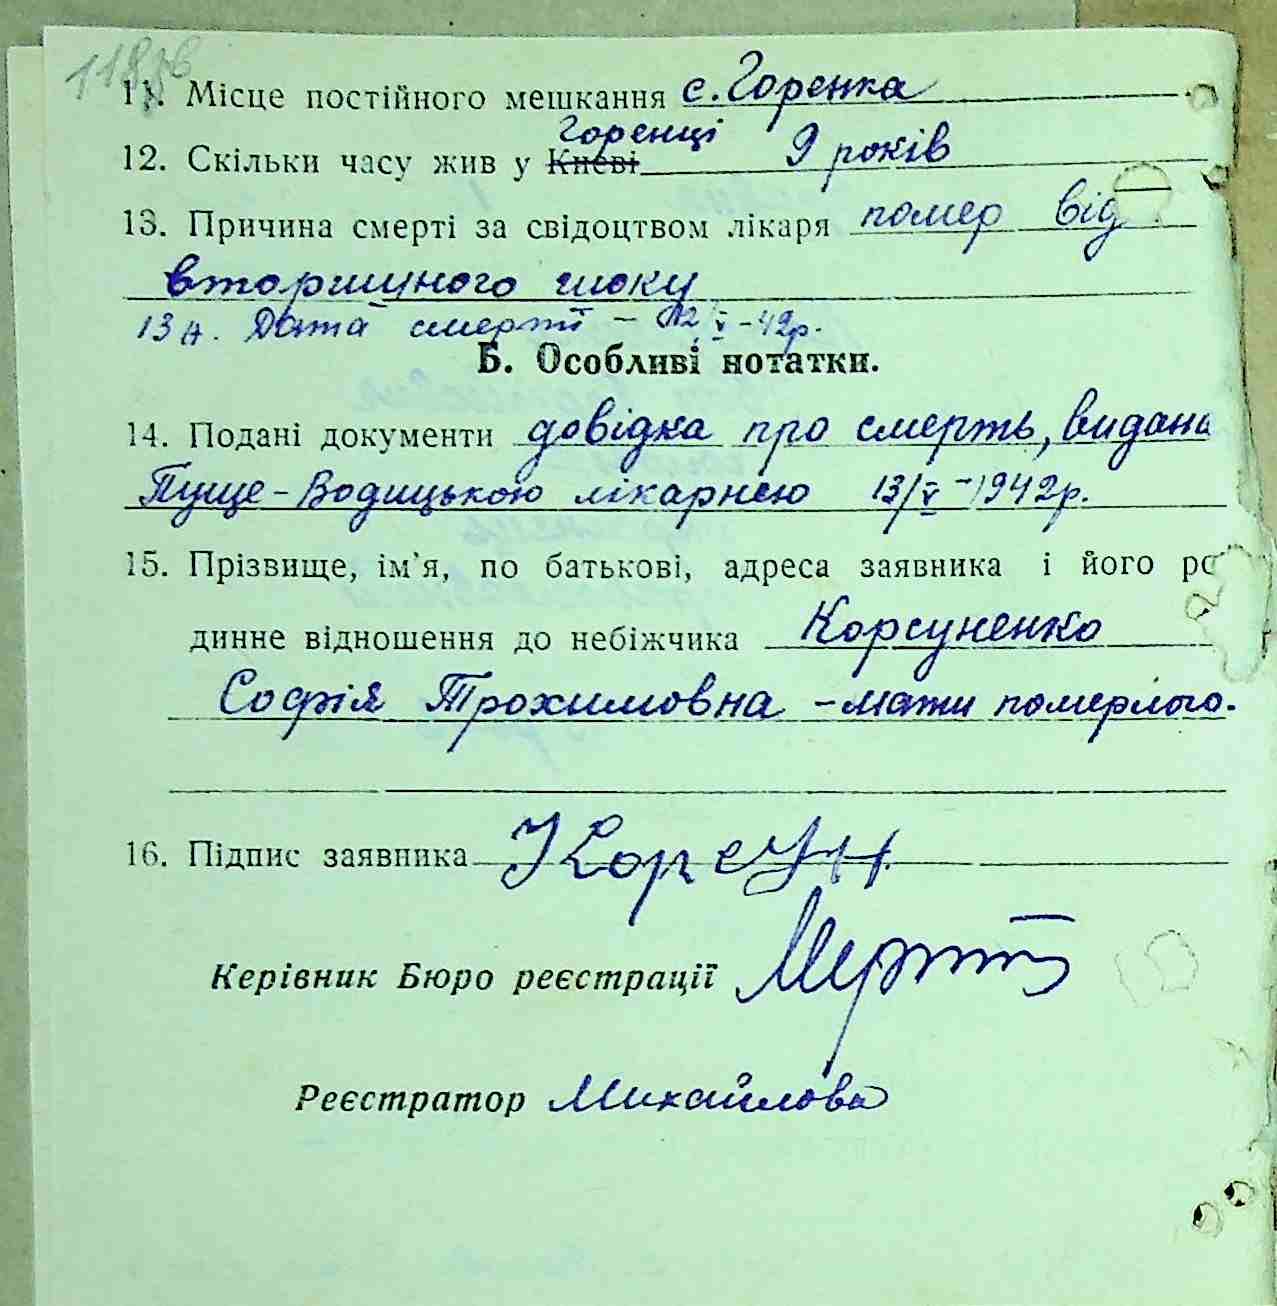 11. Місце постійного мешкання с. Горенка
Горенці
12. Скільки часу жив у Києві 9 років
13. Причина смерті за свідоцтвом лікаря помер від
вторинного шоку
13 А. Дата смерті – 12/V-42р.
Б. Особливі нотатки.
14. Подані документи довідка про смерть, видана
Пуще-Водицькою лікарнею 13/V-1942р.
15. Прізвище, ім'я, по батькові, адреса заявника і його ро
динне відношення до небіжчика Корсуненко
Софія Трохимовна – мати померлого.
16. Підпис заявника Корсун
Керівник Бюро реєстрації
Реєстратор Михайлова